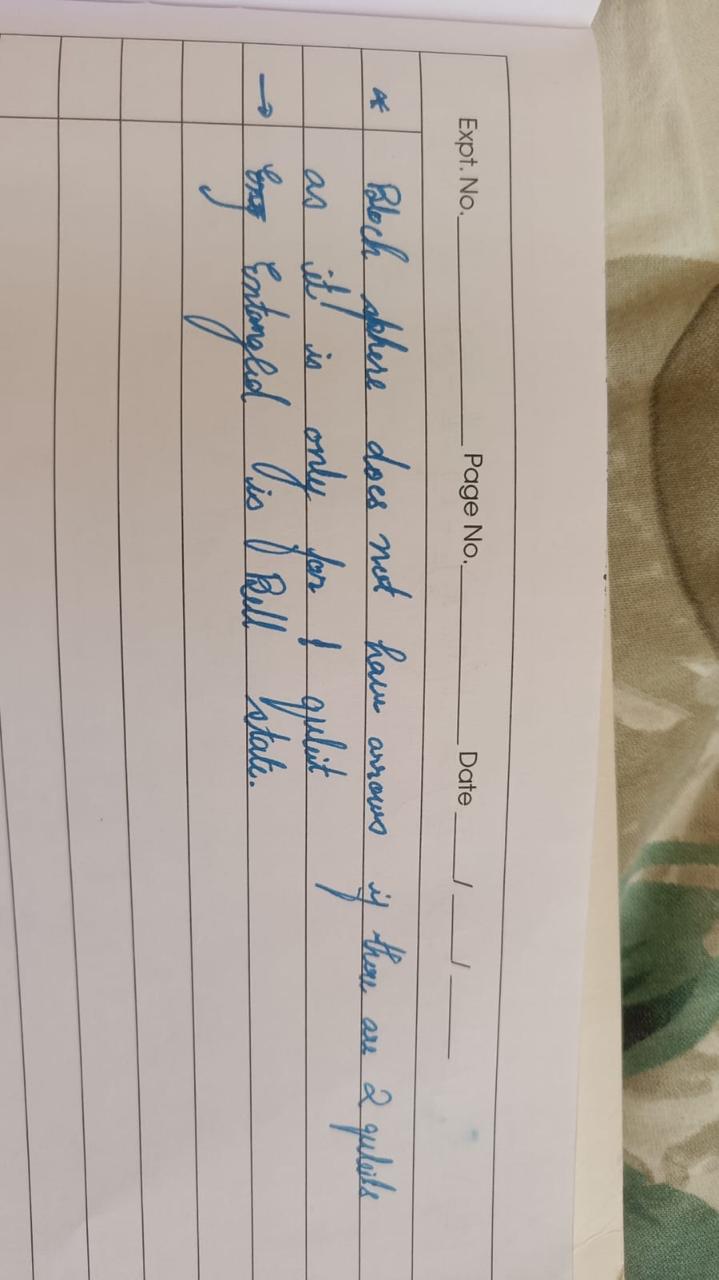 Expt. No. Page No. Date / /
* Bloch sphere does not have arrows if there are 2 qubits
as it is only for 1 qubit
→ Entangled is Bell state.